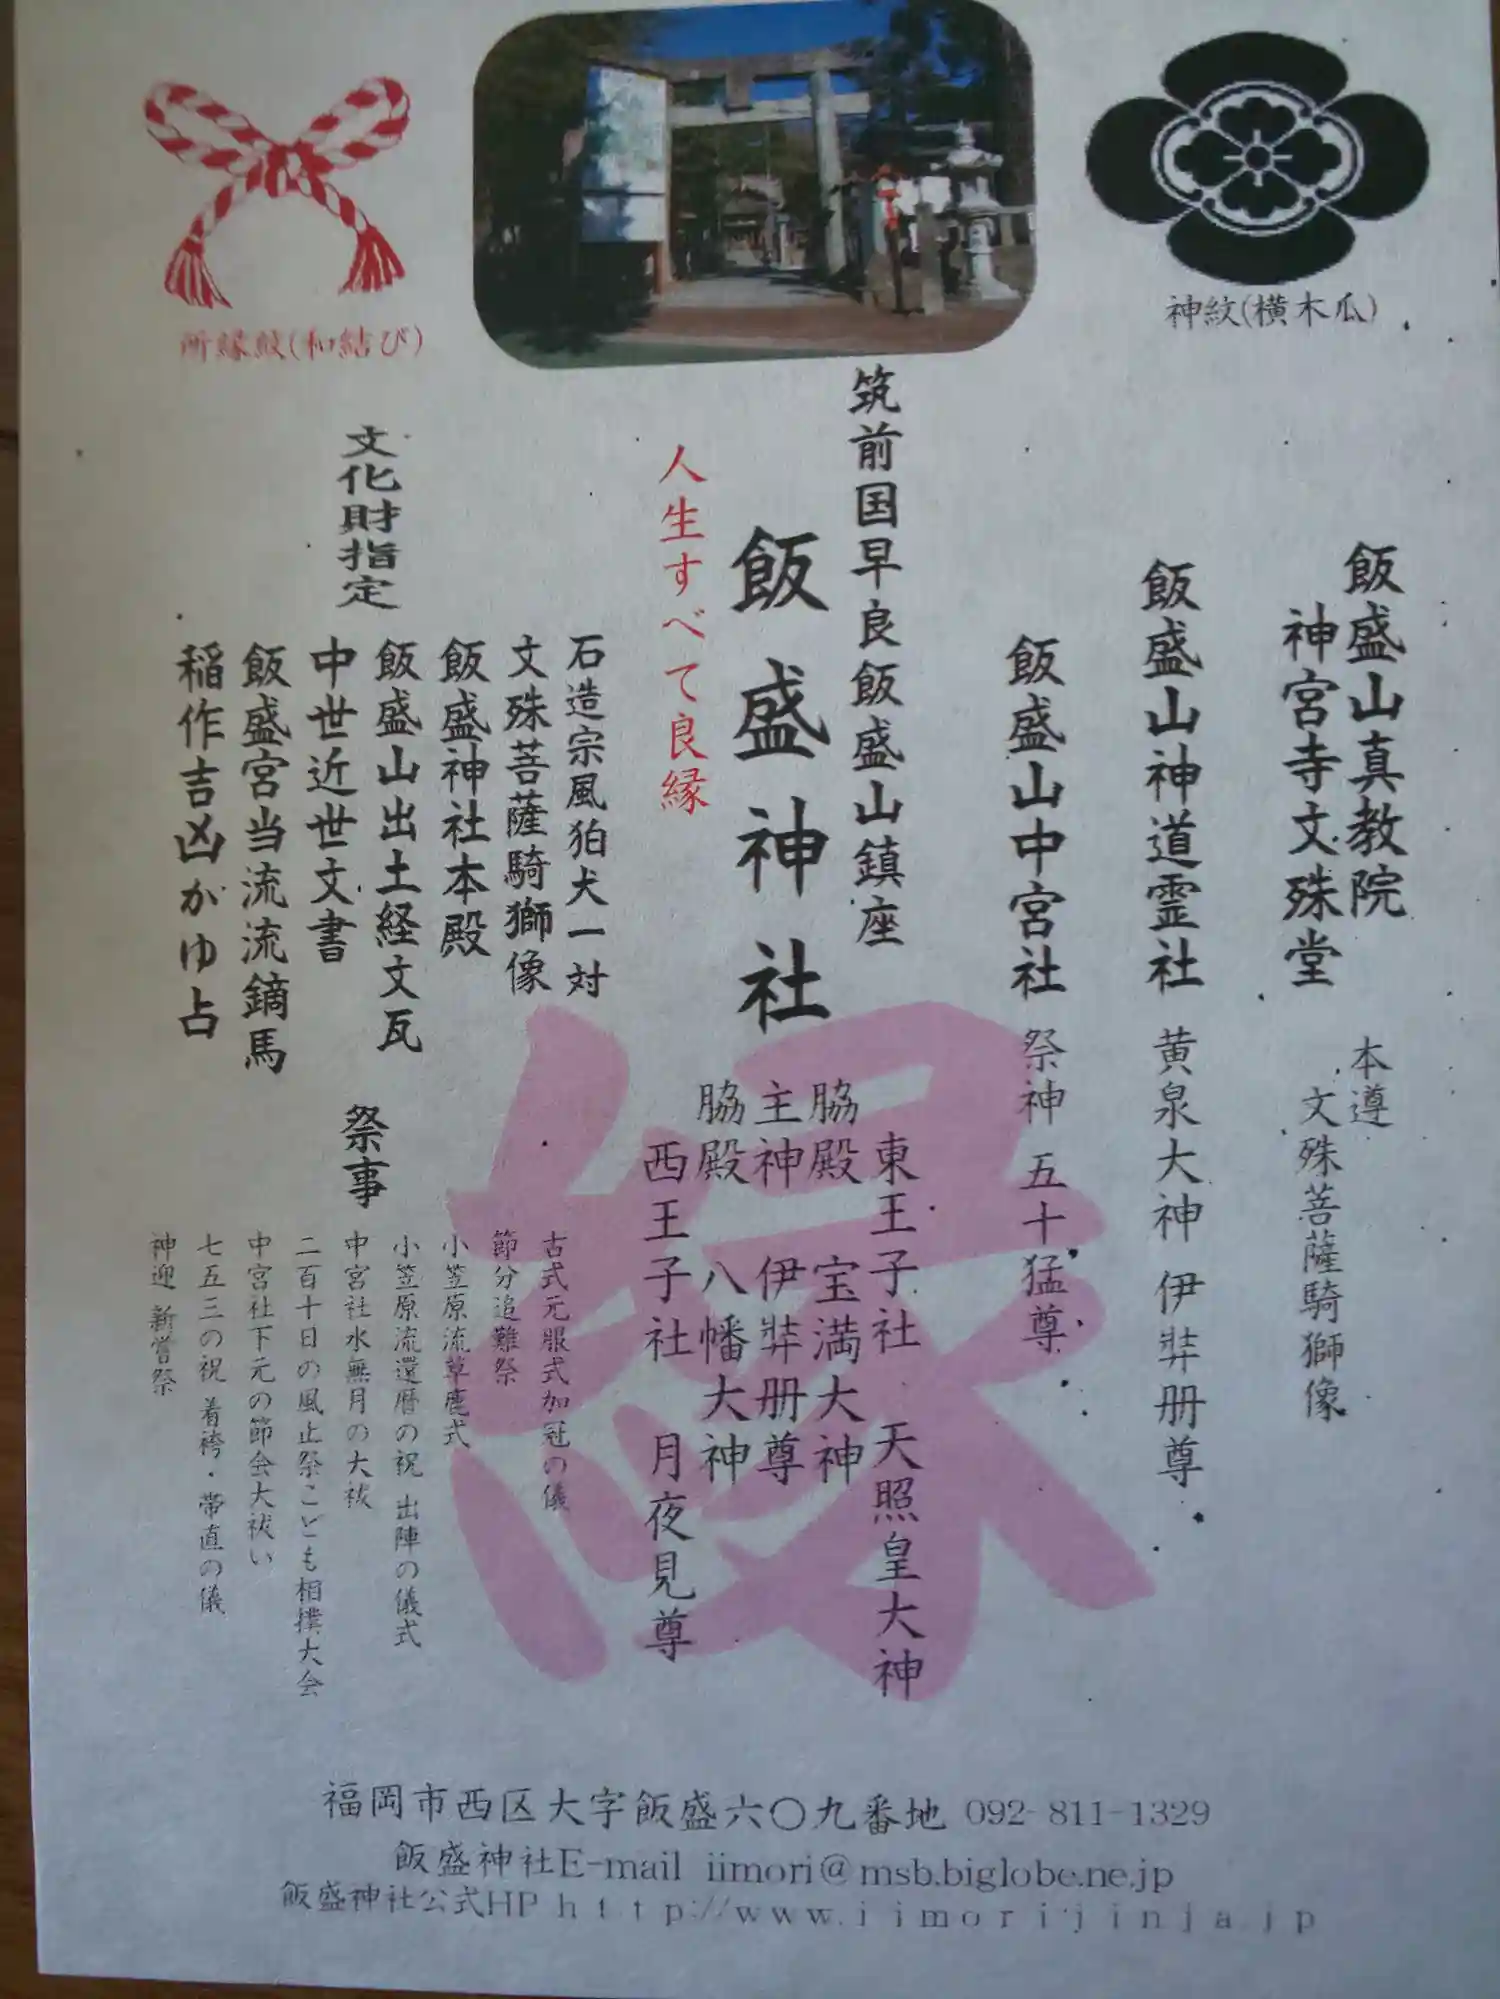 所縁紋(和結び)
神紋(横木瓜)
飯盛山真教院
神宮寺文殊堂
本遵
文殊菩薩騎獅像
飯盛山神道霊社 黄泉大神 伊弉冊尊
飯盛山中宮社 祭神 五十猛尊
筑前国早良飯盛山鎮座
飯盛神社
人生すべて良縁
東王子社 天照皇大神
脇殿 宝満大神
主神 伊弉冊尊
脇殿 八幡大神
西王子社 月夜見尊
縁
文化財指定
石造宗風狛犬一対
文殊菩薩騎獅像
飯盛神社本殿
飯盛山出土経文瓦
中世近世文書
飯盛宮当流流鏑馬
稲作吉凶かゆ占
祭事
古式元服式加冠の儀
節分追難祭
小笠原流草鹿式
小笠原流還暦の祝 出陣の儀式
中宮社水無月の大祓
二百十日の風止祭こども相撲大会
中宮社下元の節会大祓い
七五三の祝 着袴・帯直の儀
神迎 新嘗祭
福岡市西区大字飯盛六〇九番地 092-811-1329
飯盛神社E-mail iimori@msb.biglobe.ne.jp
飯盛神社公式HP http://www.iimorijinja.jp